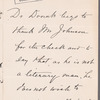 De Donato begs to
thank Mr. Johnson
for the check and to
say that as he is not
a literary man, he
does not wish to